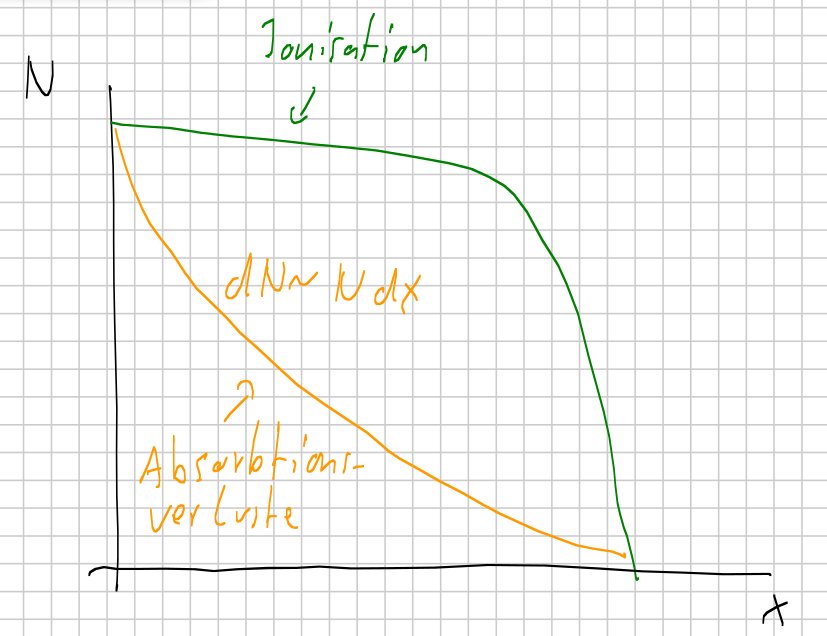 Ionisation
N
dN~ N dx
Absorbtions-
verluste
x